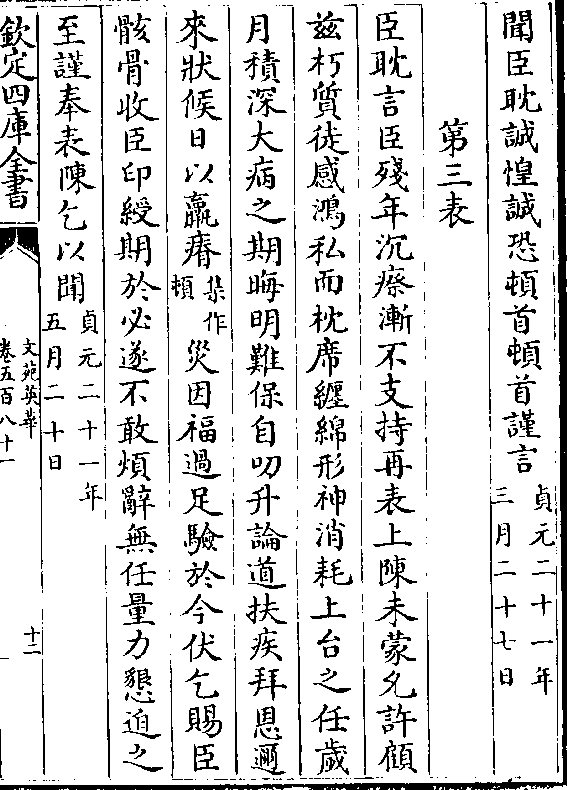 聞臣耽誠惶誠恐頓首頓首謹言貞元二十一年三月二十七日
第三表
臣耽言臣殘年沉瘵漸不支持再表上陳未蒙允許顧
兹朽質徒感鴻私而枕席纏綿形神消耗上台之任歲
月積深大病之期晦明難保自叨升論道扶疾拜恩邇
來狀候日以羸瘠集作頓災因福過足驗於今伏乞賜臣
骸骨收臣印綬期於必遂不敢煩辭無任量力懇迫之
至謹奉表陳乞以聞貞元二十一年五月二十日
欽定四庫全書
文苑英華
卷五百八十一
十二